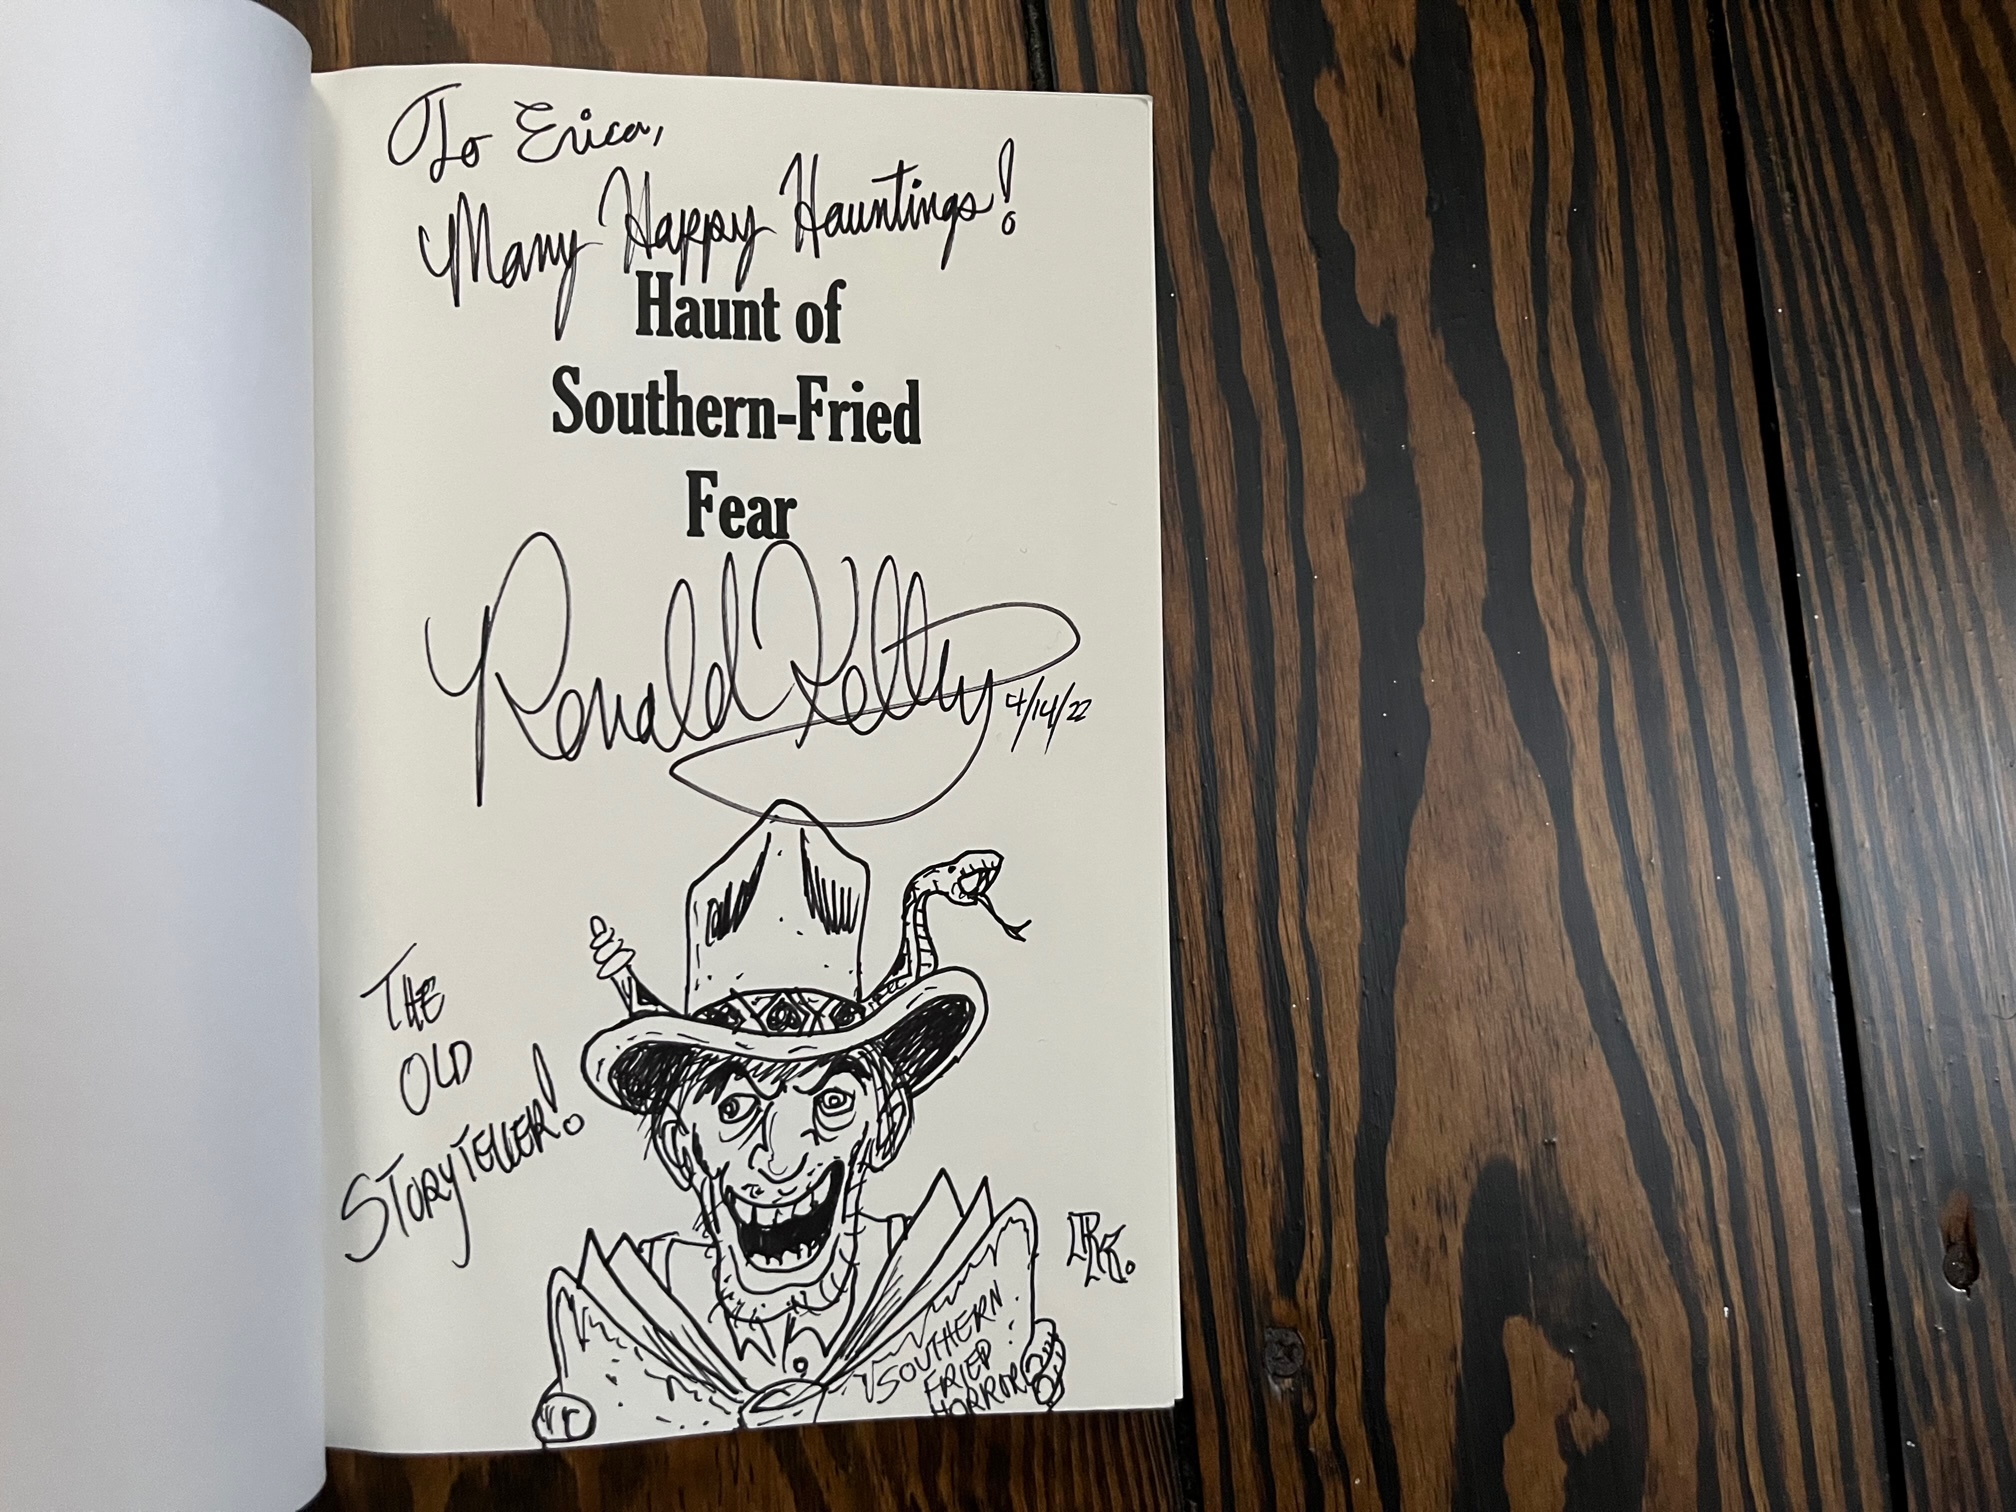 To Erica,
Many Happy Hauntings!
Haunt of
Southern-Fried
Fear
Ronald Kelly
4/14/22
THE
OLD
STORYTELLER!
RK.
SOUTHERN
FRIED
HORROR